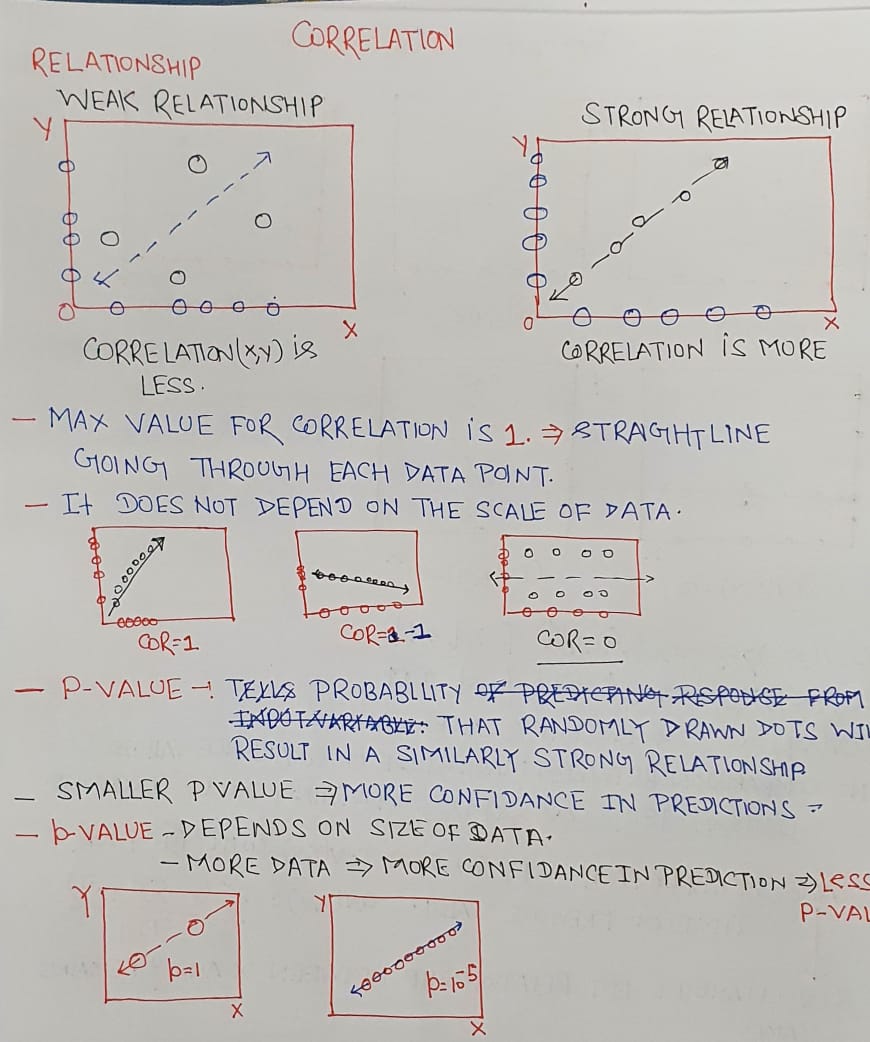 CORRELATION
RELATIONSHIP
WEAK RELATIONSHIP
STRONG RELATIONSHIP
Y
Y
O
X
O
X
CORRELATION(x,y) is
LESS.
CORRELATION is MORE
- MAX VALUE FOR CORRELATION is 1. ⇒ STRAIGHTLINE
GOING THROUGH EACH DATA POINT.
- It DOES NOT DEPEND ON THE SCALE OF DATA.
COR=1
COR=-1
COR=0
- P-VALUE -: TELLS PROBABLLITY OF PREDICTING RESPONSE FROM
THAT RANDOMLY DRAWN DOTS WIL
RESULT IN A SIMILARLY STRONG RELATIONSHIP
- SMALLER P VALUE ⇒ MORE CONFIDANCE IN PREDICTIONS
- p-VALUE - DEPENDS ON SIZE OF DATA.
- MORE DATA ⇒ MORE CONFIDANCE IN PREDICTION ⇒ LESS
P-VAL
Y
p=1
X
Y
p=10⁻⁵
X